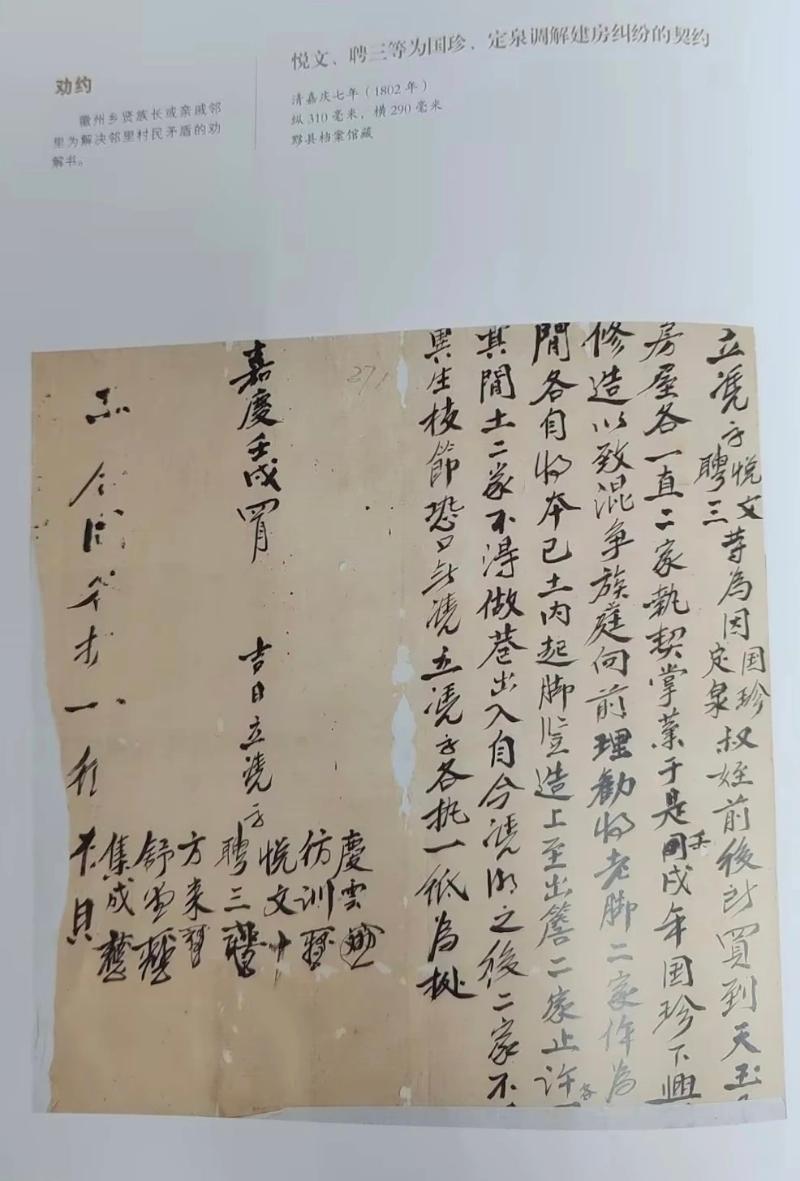 悦文、聘三等为国珍、定泉调解建房纠纷的契约
清嘉庆七年（1802 年）
纵 310 毫米，横 290 毫米
黟县档案馆藏
劝约
徽州乡贤族长或亲戚邻
里为解决邻里村民矛盾的劝
解书。
立凴字悦文聘三等為因国珍定泉叔姪前後所買到天玉
房屋各一直二家執契掌業于是壬戌年国珍下興
修造以致混争族庭向前理勸将老脚二家作為
間各自将本己土内起脚竪造上至出簷二家止許
其間土二家不得做巷出入自今凴汋之後二家不
異生枝節恐口無凴立凴字各执一纸為拠
271
嘉慶壬戌四月 吉日立凴字
慶雲
彷訓
悦文十
聘三
方来
舒
集成